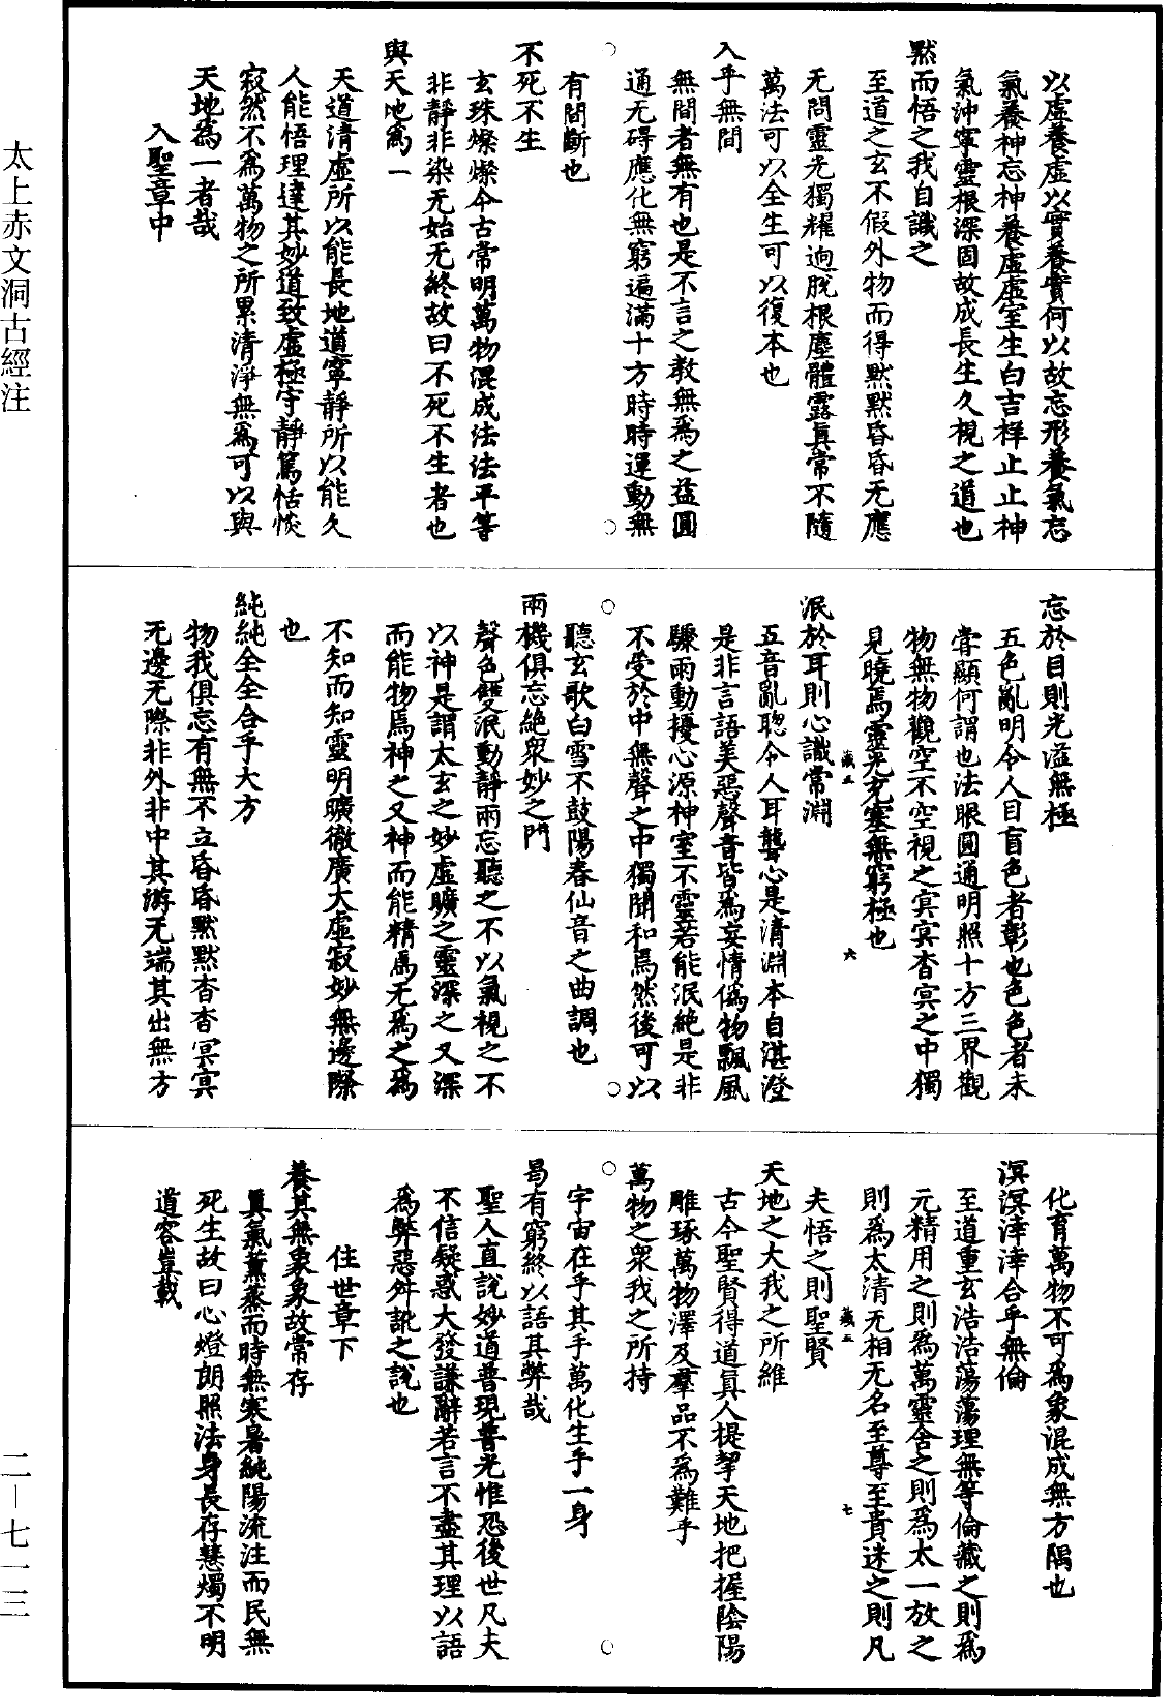 以虛養虛以實養實何以故忘形養氣忘
氣養神忘神養虛虛室生白吉祥止止神
氣沖寧靈根深固故成長生久視之道也
默而悟之我自識之
至道之玄不假外物而得默默昏昏无應
无問靈光獨耀逈脫根塵體露真常不隨
萬法可以全生可以復本也
入乎無間
無間者無有也是不言之教無為之益圓
通无碍應化無窮遍滿十方時時運動無
有間斷也
不死不生
玄珠燦燦今古常明萬物混成法法平等
非靜非染无始无終故曰不死不生者也
與天地為一
天道清虛所以能長地道寧靜所以能久
人能悟理達其妙道致虛極守靜篤恬惔
寂然不為萬物之所累清淨無為可以與
天地為一者哉
入聖章中
忘於目則光溢無極
五色亂明令人目盲色者彰也色色者未
甞顯何謂也法眼圓通明照十方三界觀
物無物觀空不空視之㝠㝠杳㝠之中獨
見曉焉靈光充塞無窮極也
泯於耳則心識常淵
五音亂聦令人耳聾心是清淵本自湛澄
是非言語美惡聲音皆為妄情偽物飄風
驟雨動擾心源神室不靈若能泯絶是非
不受於中無聲之中獨聞和焉然後可以
聽玄歌白雪不鼓陽春仙音之曲調也
兩機俱忘絶衆妙之門
聲色雙泯動靜兩忘聽之不以氣視之不
以神是謂太玄之妙虛曠之靈深之又深
而能物焉神之又神而能精焉无為之為
不知而知靈明曠徹廣大虛寂妙無邊際
也
純純全全合乎大方
物我俱忘有無不立昏昏默默杳杳㝠㝠
无邊无際非外非中其游无端其出無方
化育萬物不可為象混成無方隅也
溟溟涬涬合乎無倫
至道重玄浩浩蕩蕩理無等倫藏之則為
元精用之則為萬靈含之則為太一放之
則為太清无相无名至尊至貴迷之則凡
夫悟之則聖賢
天地之大我之所維
古今聖賢得道真人提挈天地把握陰陽
雕琢萬物澤及羣品不為難乎
萬物之衆我之所持
宇宙在乎其手萬化生乎一身
曷有窮終以語其弊哉
聖人直說妙道普現普光惟恐後世凡夫
不信疑惑大發謙辭若言不盡其理以語
為弊惡舛訛之說也
住世章下
養其無象象故常存
真氣薰蒸而時無寒暑純陽流注而民無
死生故曰心燈朗照法身長存慧燭不明
道容豈載
太上赤文洞古經注
二—七一三
六
七